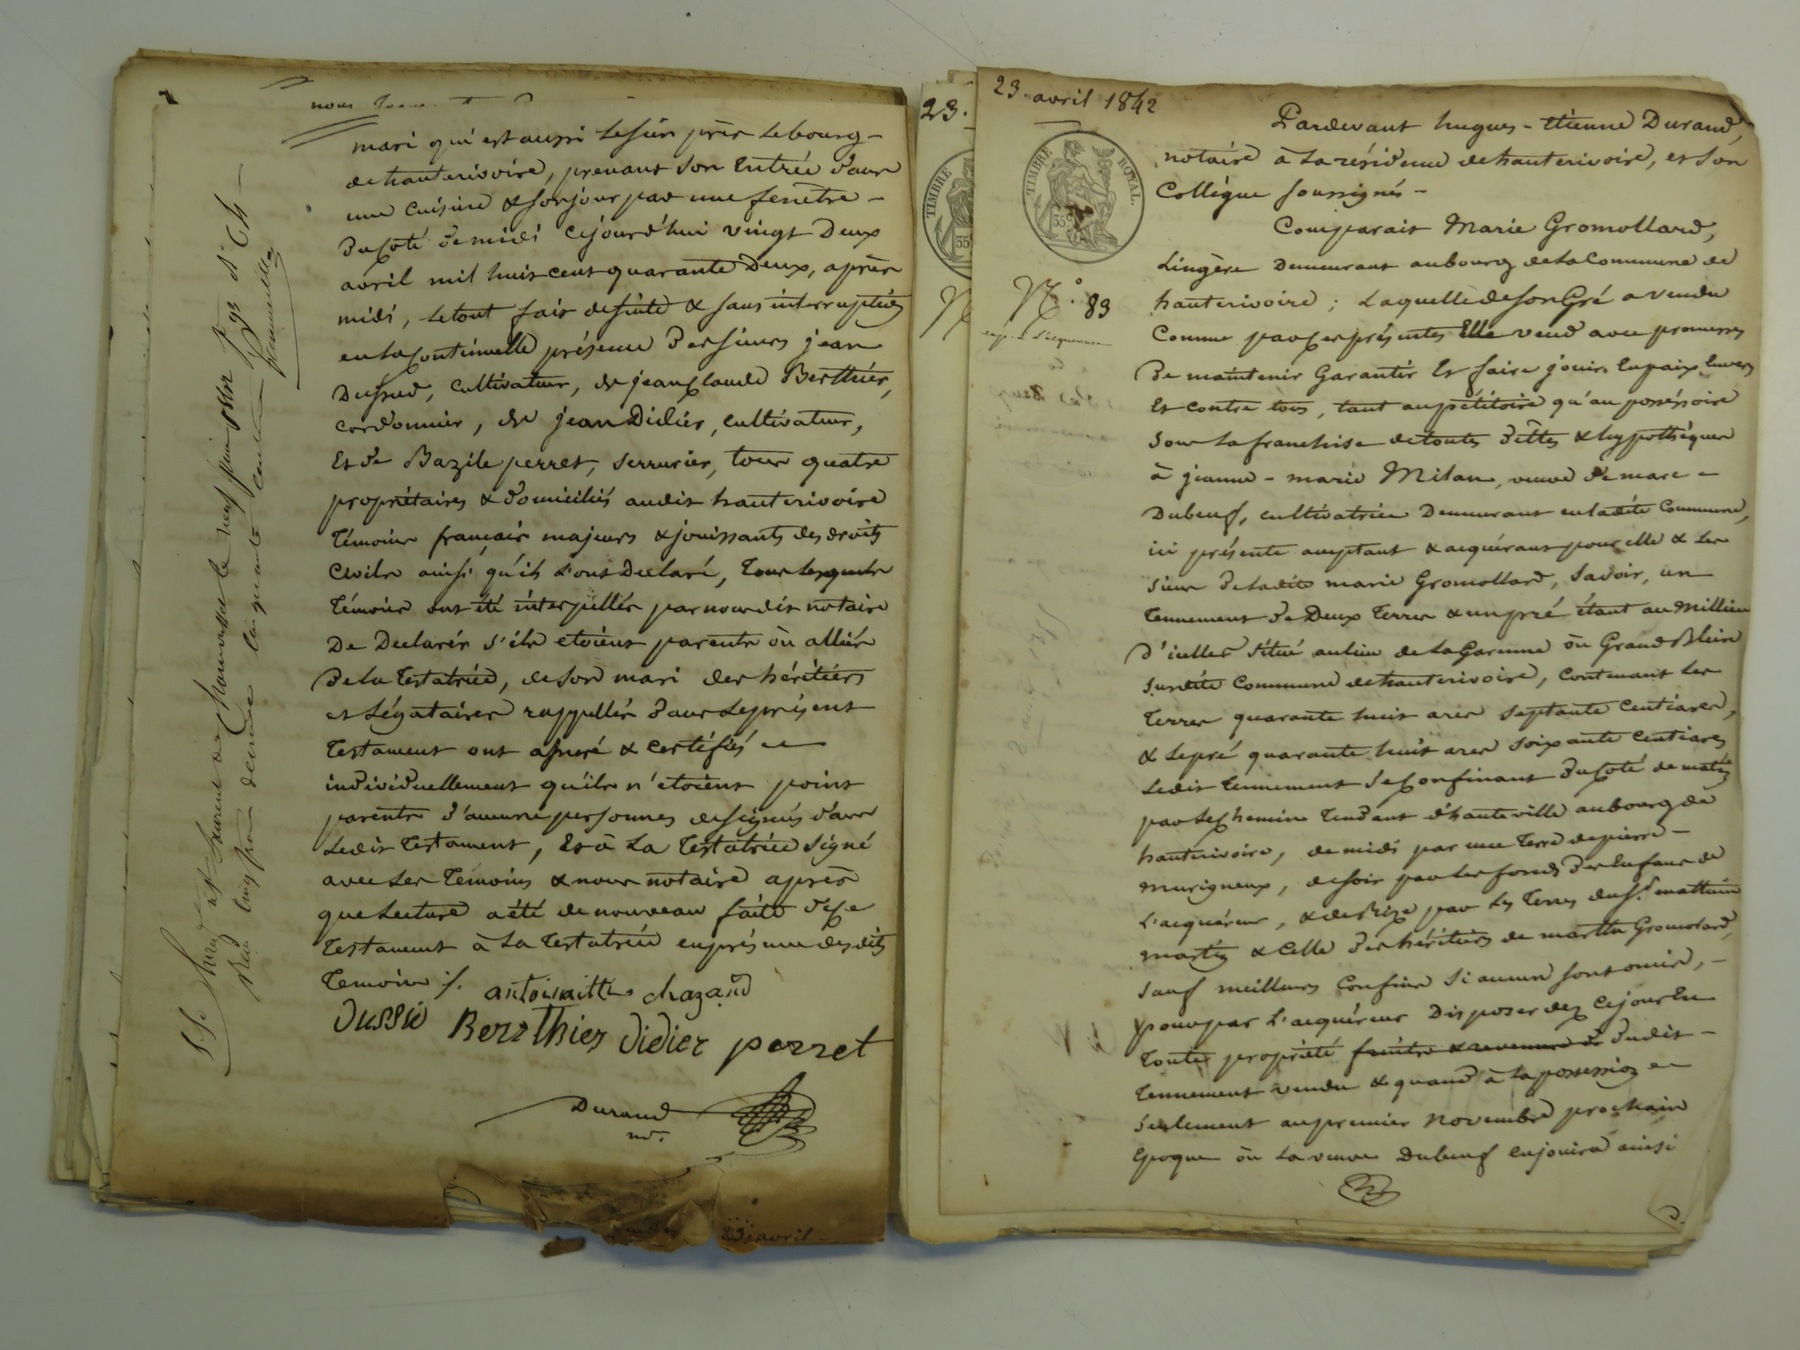 nous
mari qui est aussi le sien près le bourg
de hauterivoire, prenant son Entrée dans
une cuisine & son jour par une fenêtre -
du Coté de midi Cejourd'hui vingt Deux
avril mil huit cent quarante Deux, après
midi, le tout fait de suite & sans interruption
en la Continuelle présence des sieurs jean
Dussud, cultivateur, de jean Claude Berthier,
cordonnier, de jean Didier, cultivateur,
Et de Bazile perret, serrurier, tous quatre
propriétaires & domiciliés audit hauterivoire
Témoins français majeurs & jouissants des droits
Civils ainsi qu'ils l'ont Declaré, Tous lesquels
Témoins ont été interpellés par nous dit notaire
De Declarér s'ils etoient parents ou alliés
De la Testatrice, de son mari des héritiérs
et Légataires rappellés dans le présent
Testament ont assuré & certifiés
individuellement qu'ils n'etoient point
parents d'aucune personnes designés dans
Ledit Testament, Et à La Testatrice signé
avec les Témoins & nous notaire après
que Lecture a été de nouveau faite de Ce
Testament à La Testatrice en présence des dits
Temoins ./.
antoinaitte chazaud
Dussud Berrthier didier perret
Durand
nre.
23 avril
23.
TIMBRE
35
N
23. avril 1842
TIMBRE ROYAL
35 c
N.° 83
Pardevant hugues - Etienne Durand,
notaire à La résidence de hauterivoire, et son
Collègue soussignés -
Comparait Marie Gromollard,
Lingère Demeurant au bourg de La Commune de
hauterivoire ; Laquelle de son Gré a vendu
Comme par Ces présentes Elle vend avec promesses
De maintenir Garantir Et faire jouir En paix Envers
Et contre tous, tant au pétitoire qu'au possessoire
sous La franchise de toutes dettes & hypothèques
à jeanne - marie Milan, veuve de marc -
Dubeuf, cultivatrice Demeurant en ladite Commune,
ici présente acceptant & acquérant pour elle & les
siens De ladite marie Gromollard, Savoir, un
Tennement de Deux Terres & un pré étant au Millieu
D'icelles situé au lieu de La Garenne ou Grand Blein
susdite Commune de hauterivoire, Contenant Les
Terres quarante huit ares septante Centiares,
& Le pré quarante huit ares soixante Centiares
Ledit Tennement se Confinant du Coté de matin
par Le Chemin Tendant d'hauteville au bourg de
hauterivoire, de midi par une Terre de pierre -
Murigneux, de soir par Les fonds des Enfans de
L'acquéreur, & de Bize par Les Terres du S.r mathieu
martin & Celle des héritiers de martin Gromolard,
sauf meilleurs Confins si aucun sont omis, -
pour par L'acquéreur Disposer dez Cejour En
Toute propriété fruits & revenus de Dudit -
Tennement vendu & quand à La possession
seulement au premier Novembre prochain
Epoque où La veuve Dubeuf En jouira ainsi